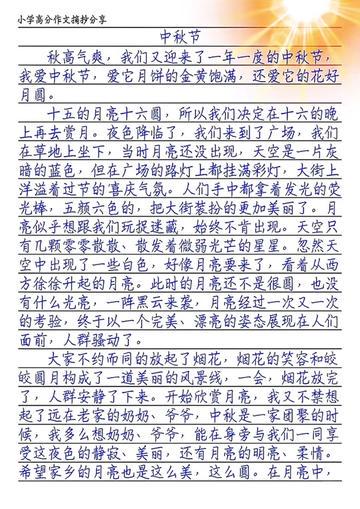 小学高分作文摘抄分享
中秋节
秋高气爽，我们又迎来了一年一度的中秋节，
我爱中秋节，爱它月饼的金黄饱满，还爱它的花好
月圆。
十五的月亮十六圆，所以我们决定在十六的晚
上再去赏月。夜色降临了，我们来到了广场，我们
在草地上坐下，当时月亮还没出现，天空是一片灰
暗的蓝色，但在广场的路灯上都挂满彩灯，大街上
洋溢着过节的喜庆气氛。人们手中都拿着发光的荧
光棒，五颜六色的，把大街装扮的更加美丽了。月
亮似乎想跟我们玩捉迷藏，始终不肯出现。天空只
有几颗零零散散、散发着微弱光芒的星星。忽然天
空中出现了一些白色，好像月亮要来了，看着从西
方徐徐升起的月亮。此时的月亮还不是很圆，也没
有什么光亮，一阵黑云来袭，月亮经过一次又一次
的考验，终于以一个完美、漂亮的姿态展现在人们
面前，人群骚动了。
大家不约而同的放起了烟花，烟花的笑容和皎
皎圆月构成了一道美丽的风景线，一会，烟花放完
了，人群安静了下来。开始欣赏月亮，我又不禁想
起了远在老家的奶奶、爷爷，中秋是一家团聚的时
候，我多么想奶奶、爷爷，能在身旁与我们一同享
受这夜色的静寂、美丽，还有月亮的明亮、柔情。
希望家乡的月亮也是这么美，这么圆。在月亮中，